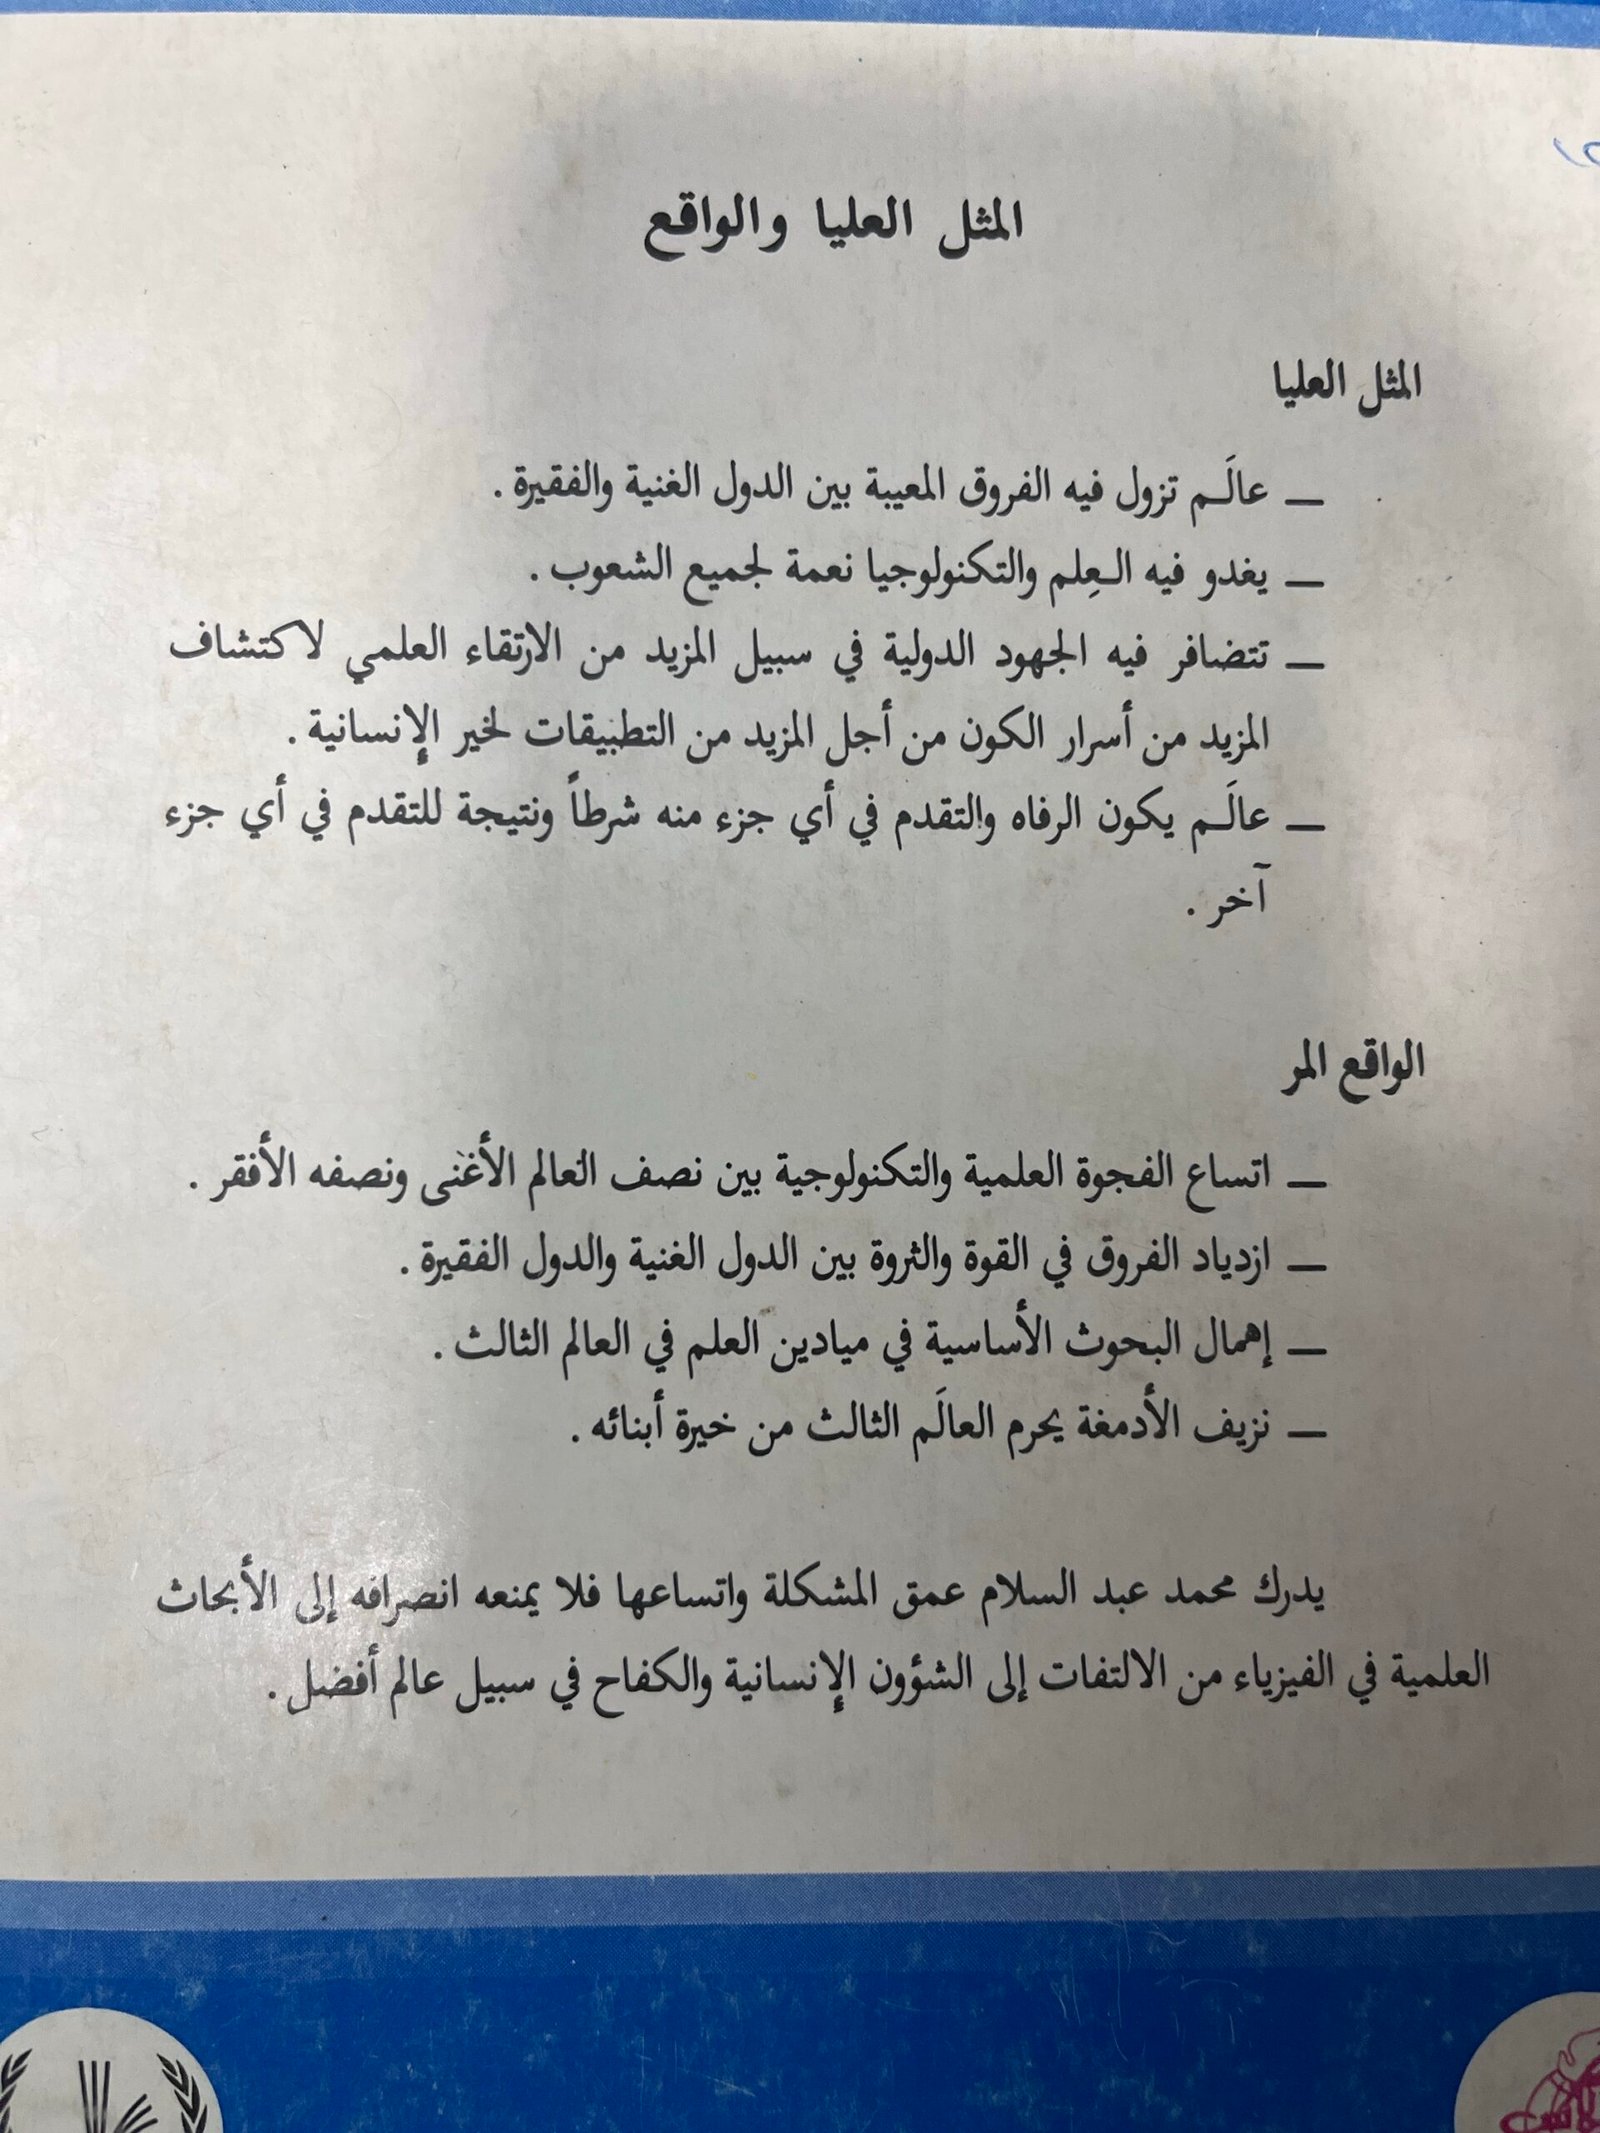 المثل العليا والواقع
المثل العليا
ــ عالَـم تزول فيه الفروق المعيبة بين الدول الغنية والفقيرة .
ــ يغدو فيه الـعِلم والتكنولوجيا نعمة لجميع الشعوب .
ــ تتضافر فيه الجهود الدولية في سبيل المزيد من الارتقاء العلمي لاكتشاف
المزيد من أسرار الكون من أجل المزيد من التطبيقات لخير الإنسانية .
ــ عالَـم يكون الرفاه والتقدم في أي جزء منه شرطاً ونتيجة للتقدم في أي جزء
آخر .
الواقع المر
ــ اتساع الفجوة العلمية والتكنولوجية بين نصف العالم الأغنى ونصفه الأفقر .
ــ ازدياد الفروق في القوة والثروة بين الدول الغنية والدول الفقيرة .
ــ إهمال البحوث الأساسية في ميادين العلم في العالم الثالث .
ــ نزيف الأدمغة يحرم العالَم الثالث من خيرة أبنائه .
يدرك محمد عبد السلام عمق المشكلة واتساعها فلا يمنعه انصرافه إلى الأبحاث
العلمية في الفيزياء من الالتفات إلى الشؤون الإنسانية والكفاح في سبيل عالم أفضل .